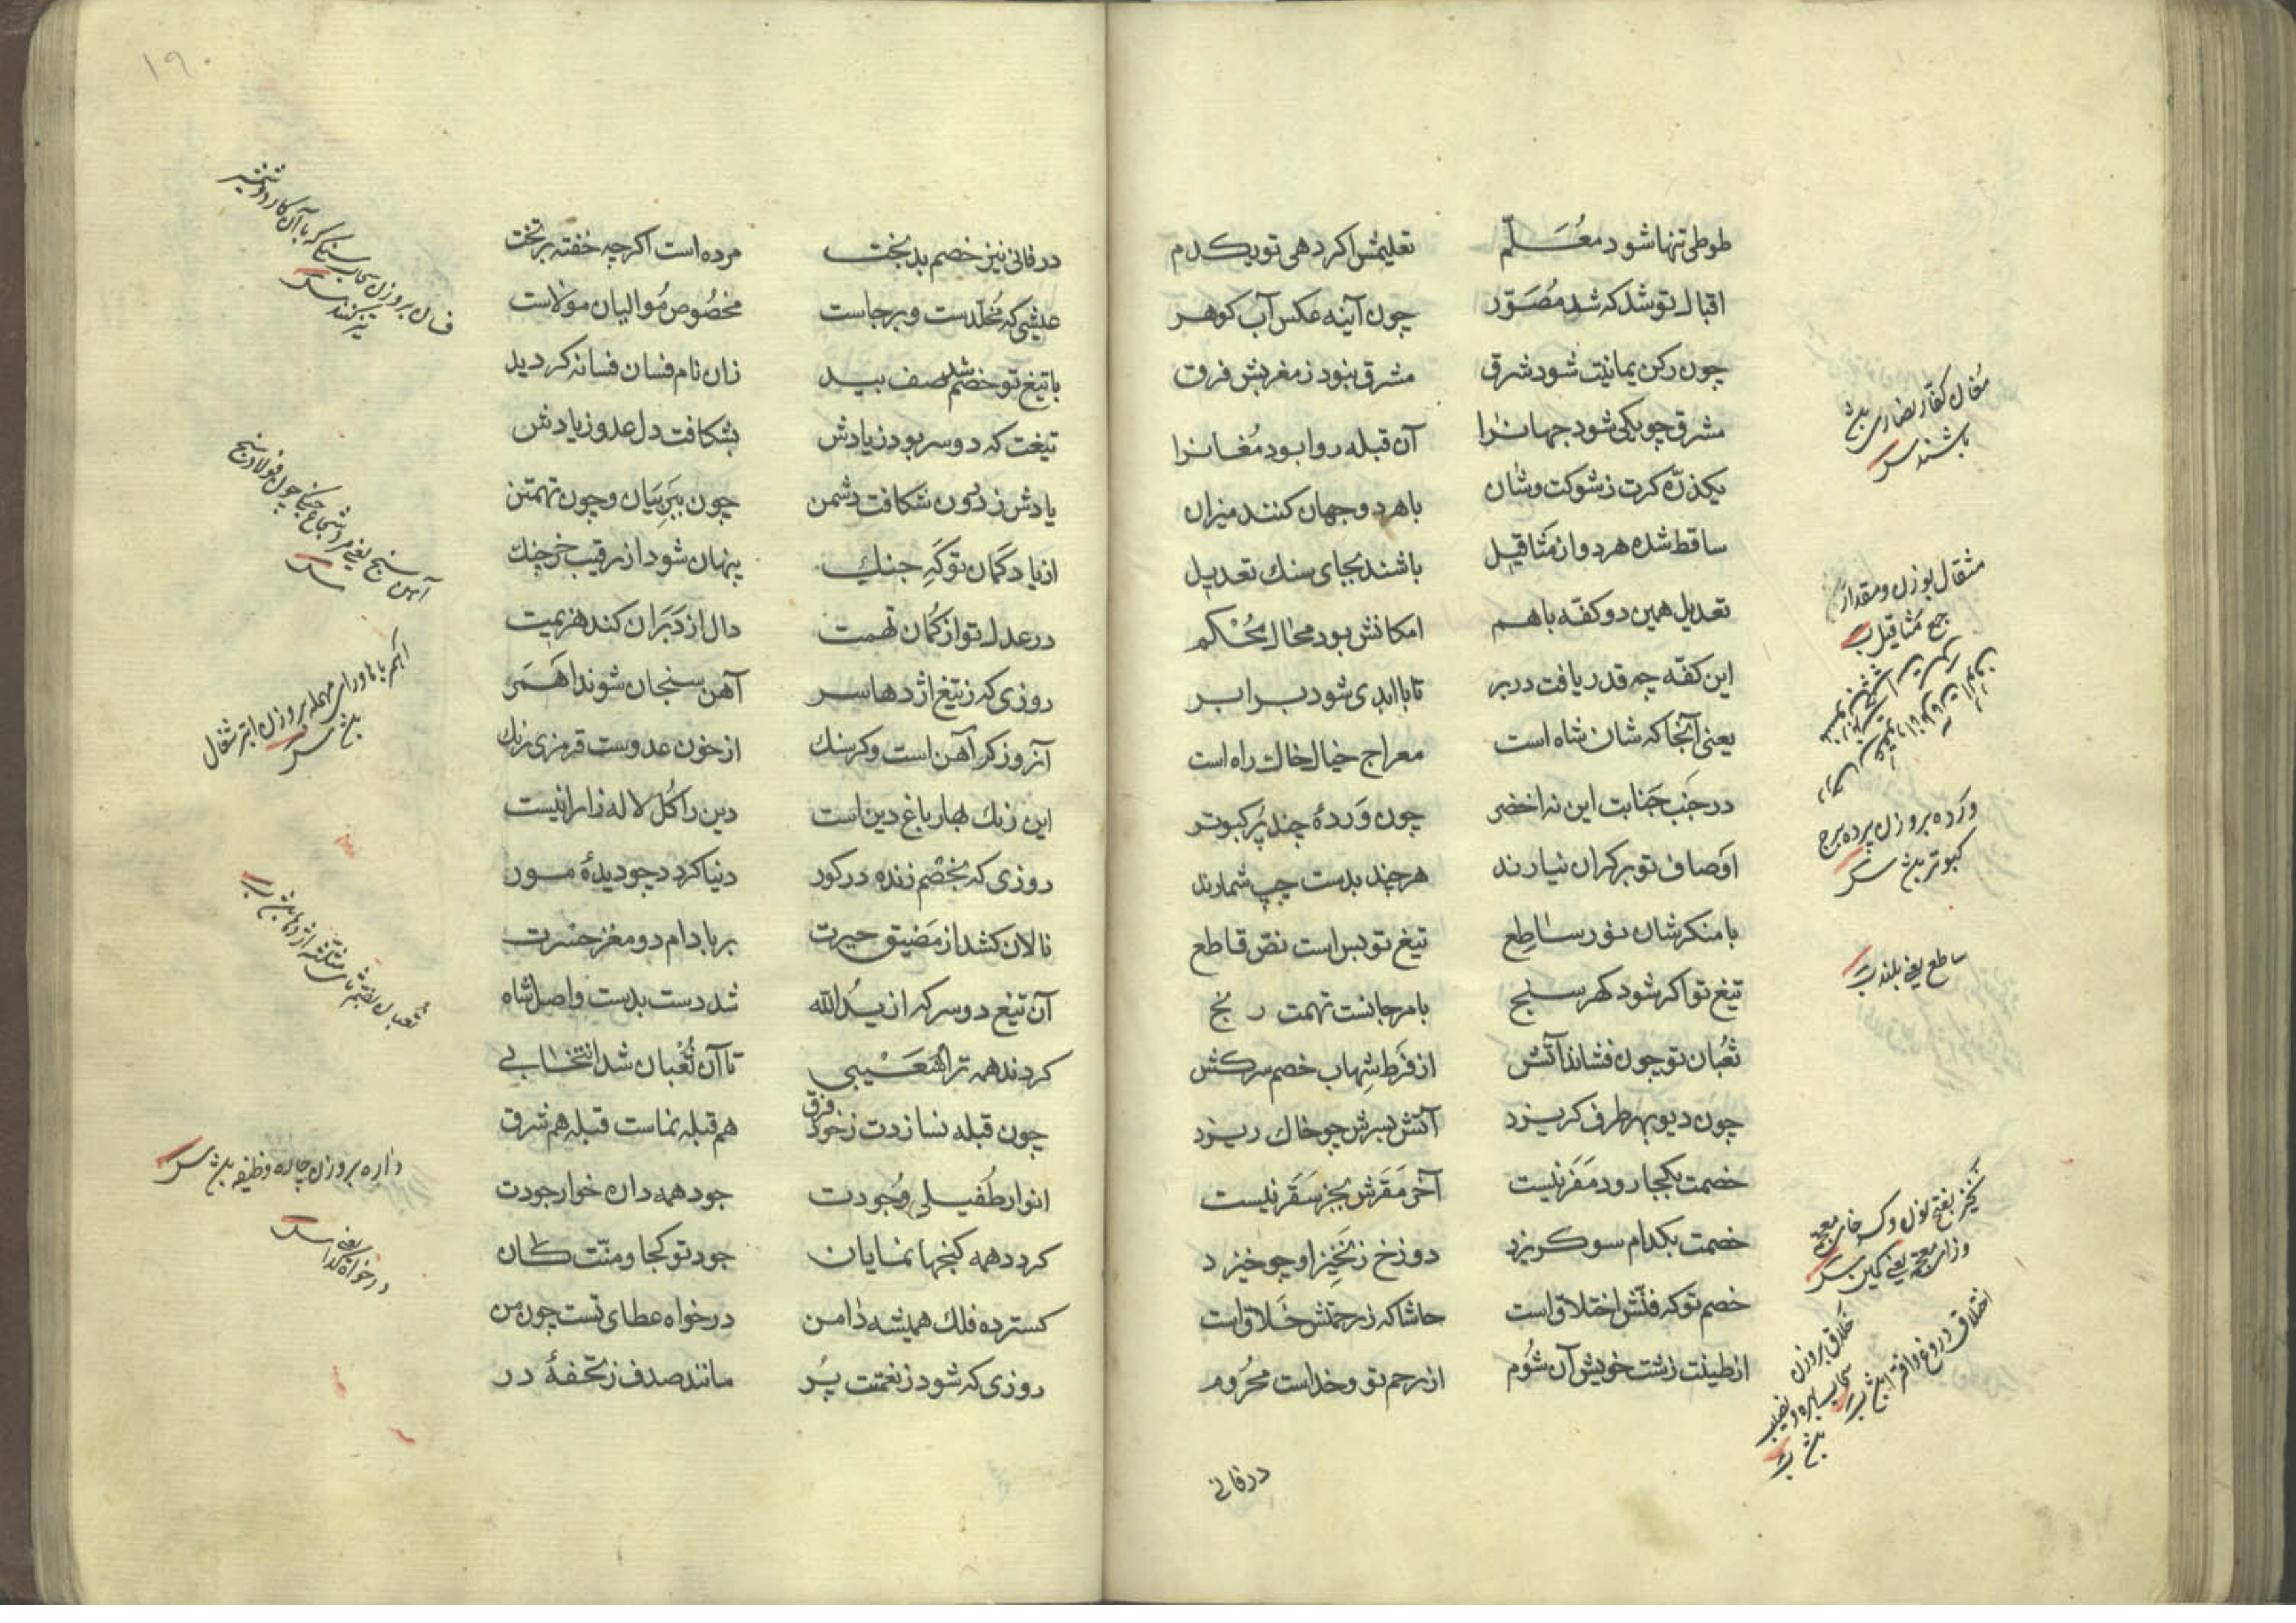 طوطی تنها شود معُلّم تعلیمش اکر دهی تو یکدم
اقبال تو شد که شد مُصَوّر چون آینه عکس آب کوهر
چون رکن یمانیت شود شرق مشرق نبود ز مغربش فرق
مشرق چو یکی شود جهانرا آن قبله روا بود مُغانرا
یکذرّه کرت ز شوکت و شان با هر دو جهان کنند میزان
ساقط شده هر دو از مثاقیل باشند بجای سنك تعدیل
تعدیل همین دو کفّه باهم امکانش بود محال محُکم
این کفّه چه قدر یافت در بر تا با ابدی شود برابر
یعنی آنجا که شان شاه است معراج خیال خاك راه است
در جَنب جَنابت این نه اخضر چون وَردهٔ چند پُر کبوتر
اوصاف تو بر کران نیارند هر چند بدست چپ شمارند
با منکر شان نور ساطِع تیغ تو بس است نصّ قاطع
تیغ تو اکر شود کهر سنج بامر جانست تهمت ر نج
ثعُبان تو چون فشاند آتش از فَرط شِهاب خصم سرکش
چون دیو بهر طرف کریزد آتش بسرش چو خاك ریزد
خصمت بکجا رود مَفَر نیست آخر مَقَرش بجز سَقَر نیست
خصمت بکدام سو کریزد دوزخ ز نَخیز او چو خیزد
خصم تو که فنّش اختلاق است حاشا که ز رحمتش خَلاق است
از طینت زشت خویش آن شُوم از رحم تو و خداست محرُوم
در فانی
مُغان کفّار نصاری بلخ باشند
مثقال بوزن و مقدار
جمع مثاقیل
وَرده بروزن پرده برج
کبوتر
ساطع یعنی بلند
نخیز بفتح نون و کسر خای معجمه
وزای معجمه یعنی کمین
اختلاق دروغ و افترا
خَلاق بروزن
سحاب بهره و نصیب
١٩٠
در فانی نیز خصم بد بخت مرده است اکرچه خُفته بر تخت
عیشی که مُخلّدست و برجاست مخصُوص مُوالیان مولاست
با تیغ تو خصم شد صف بید زان نام فسان فسانه کردید
تیغت که دو سر بود ز یادش بشکافت دل عدو ز یادش
یادش ز درُون شکافت دشمن چون ببَرِ بَیان و چون تهمتن
از یاد کمان تو کَهِ جنك پنهان شود از رقیب خرچنك
در عدل تو از کمُان تهمت دال از دَبَران کند هزیمت
روزی که ز تیغ اژدها سر آهن سنجان شوند اَهمَر
آنروز کر آهن است و کر سنك از خون عدوست قرمزی رنك
این رنك بهار باغ دین است دین را کُل لاله زار اینست
روزی که بخصْم زنده در کور دنیا کردد چو دیدهٔ مور
نالان کشد از مَضیق حیرت بر بادام دو مغز حسرت
آن تیغ دو سر که از یدُالله شد دست بدست واصل شاه
کردند همه ترا شُعَیْبی تا آن ثُعْبان شد انتخابی
چون قبله نسازدت ز خود فرق هم قبله نماست قبله هم شرق
انوار طُفیلی وُجودت جود همه داره خوار جودت
کردد همه کنجها نمایان جود تو کجا و منّت کان
کسترده فلك همیشه دامن درخواه عطای تست چون من
روزی که شود ز نعمتت پُر مانند صدف ز تحفهٔ در
فسان بروزن سحاب سنکی که با آن کارد و شمشیر
تیز کنند
آهن سنج یعنی مرد شجاع جنکی چون فولاد سنج
اهمر با ها و رای مهمله بروزن ابتر شغال
ثعبان بضم ثای مثلثه اژدها
داره بروزن چاره وظیفه
درخواه یعنی کدا